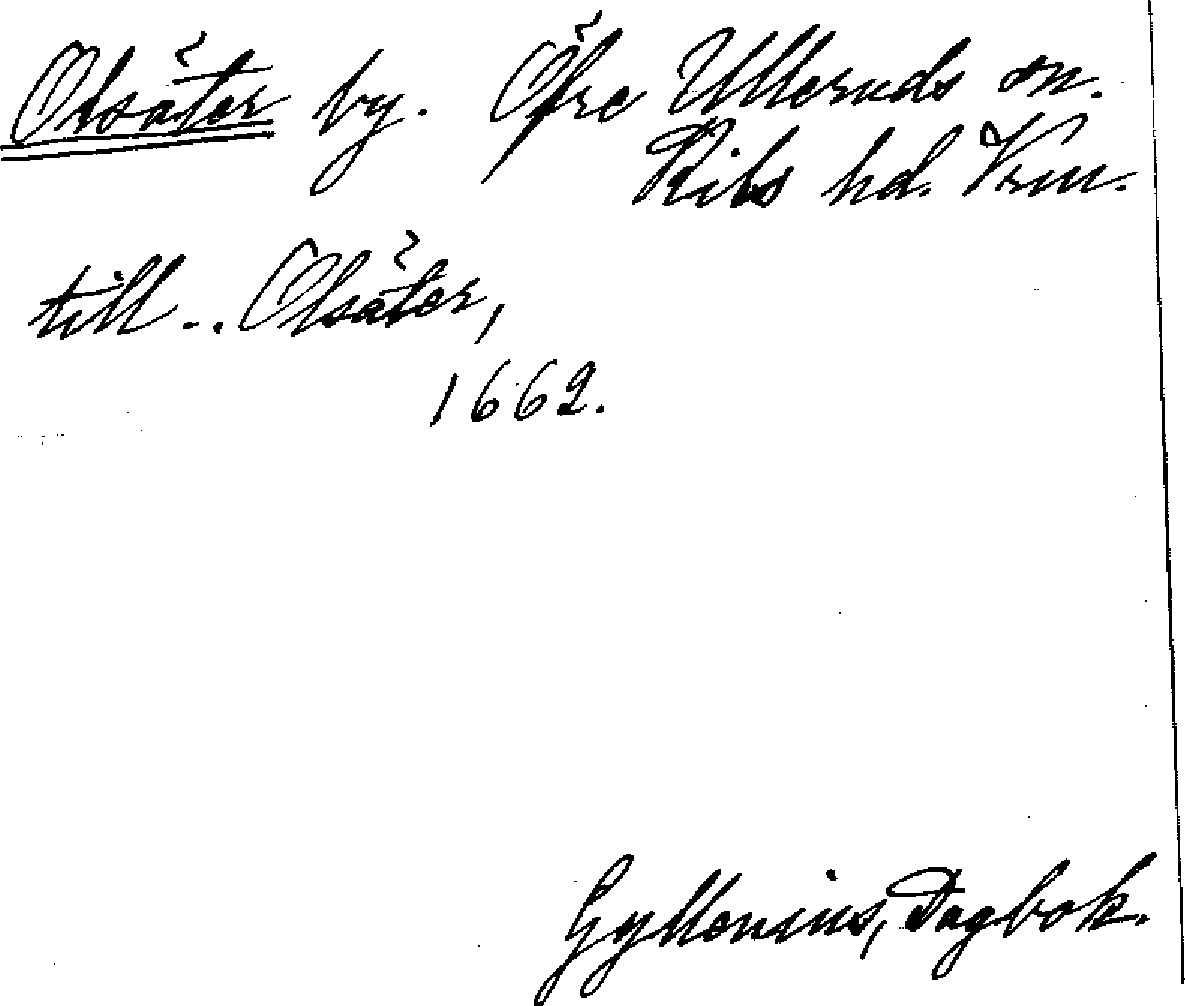 Olsäter by. Öfre Ulleruds sn.
Kils hd. Vrm.
till .. Olsäter,
1662.
Gyllenius, Dagbok.